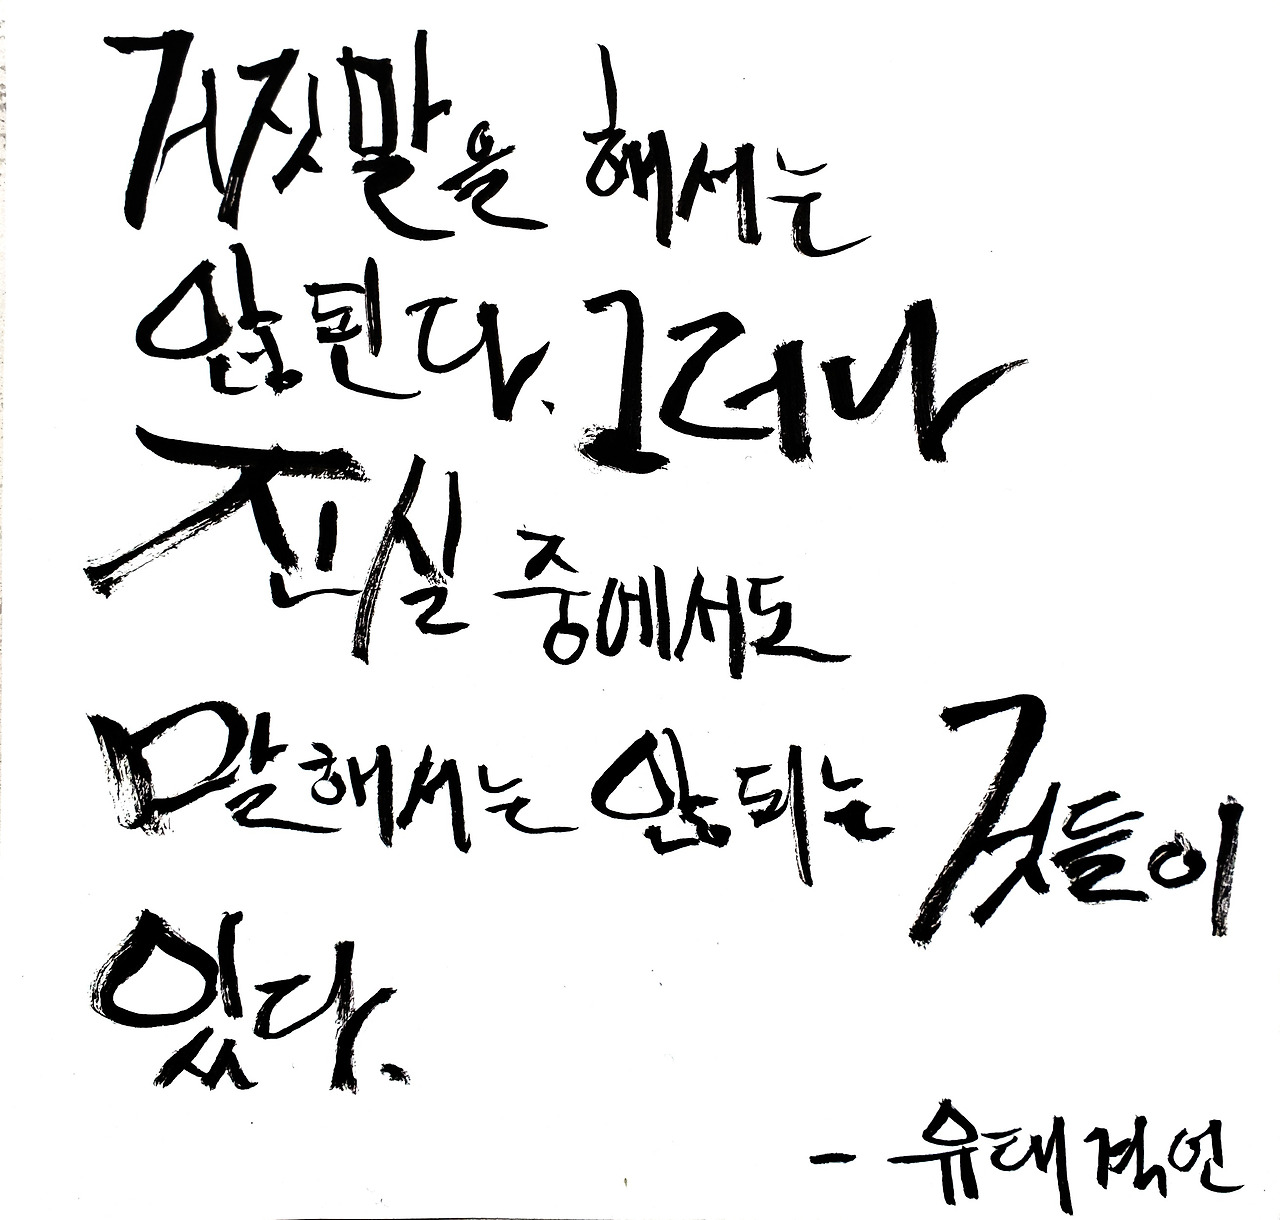 거짓말을 해서는
않된다. 그러나
진실 중에서도
말해서는 않되는 것들이
있다.
- 유태격언